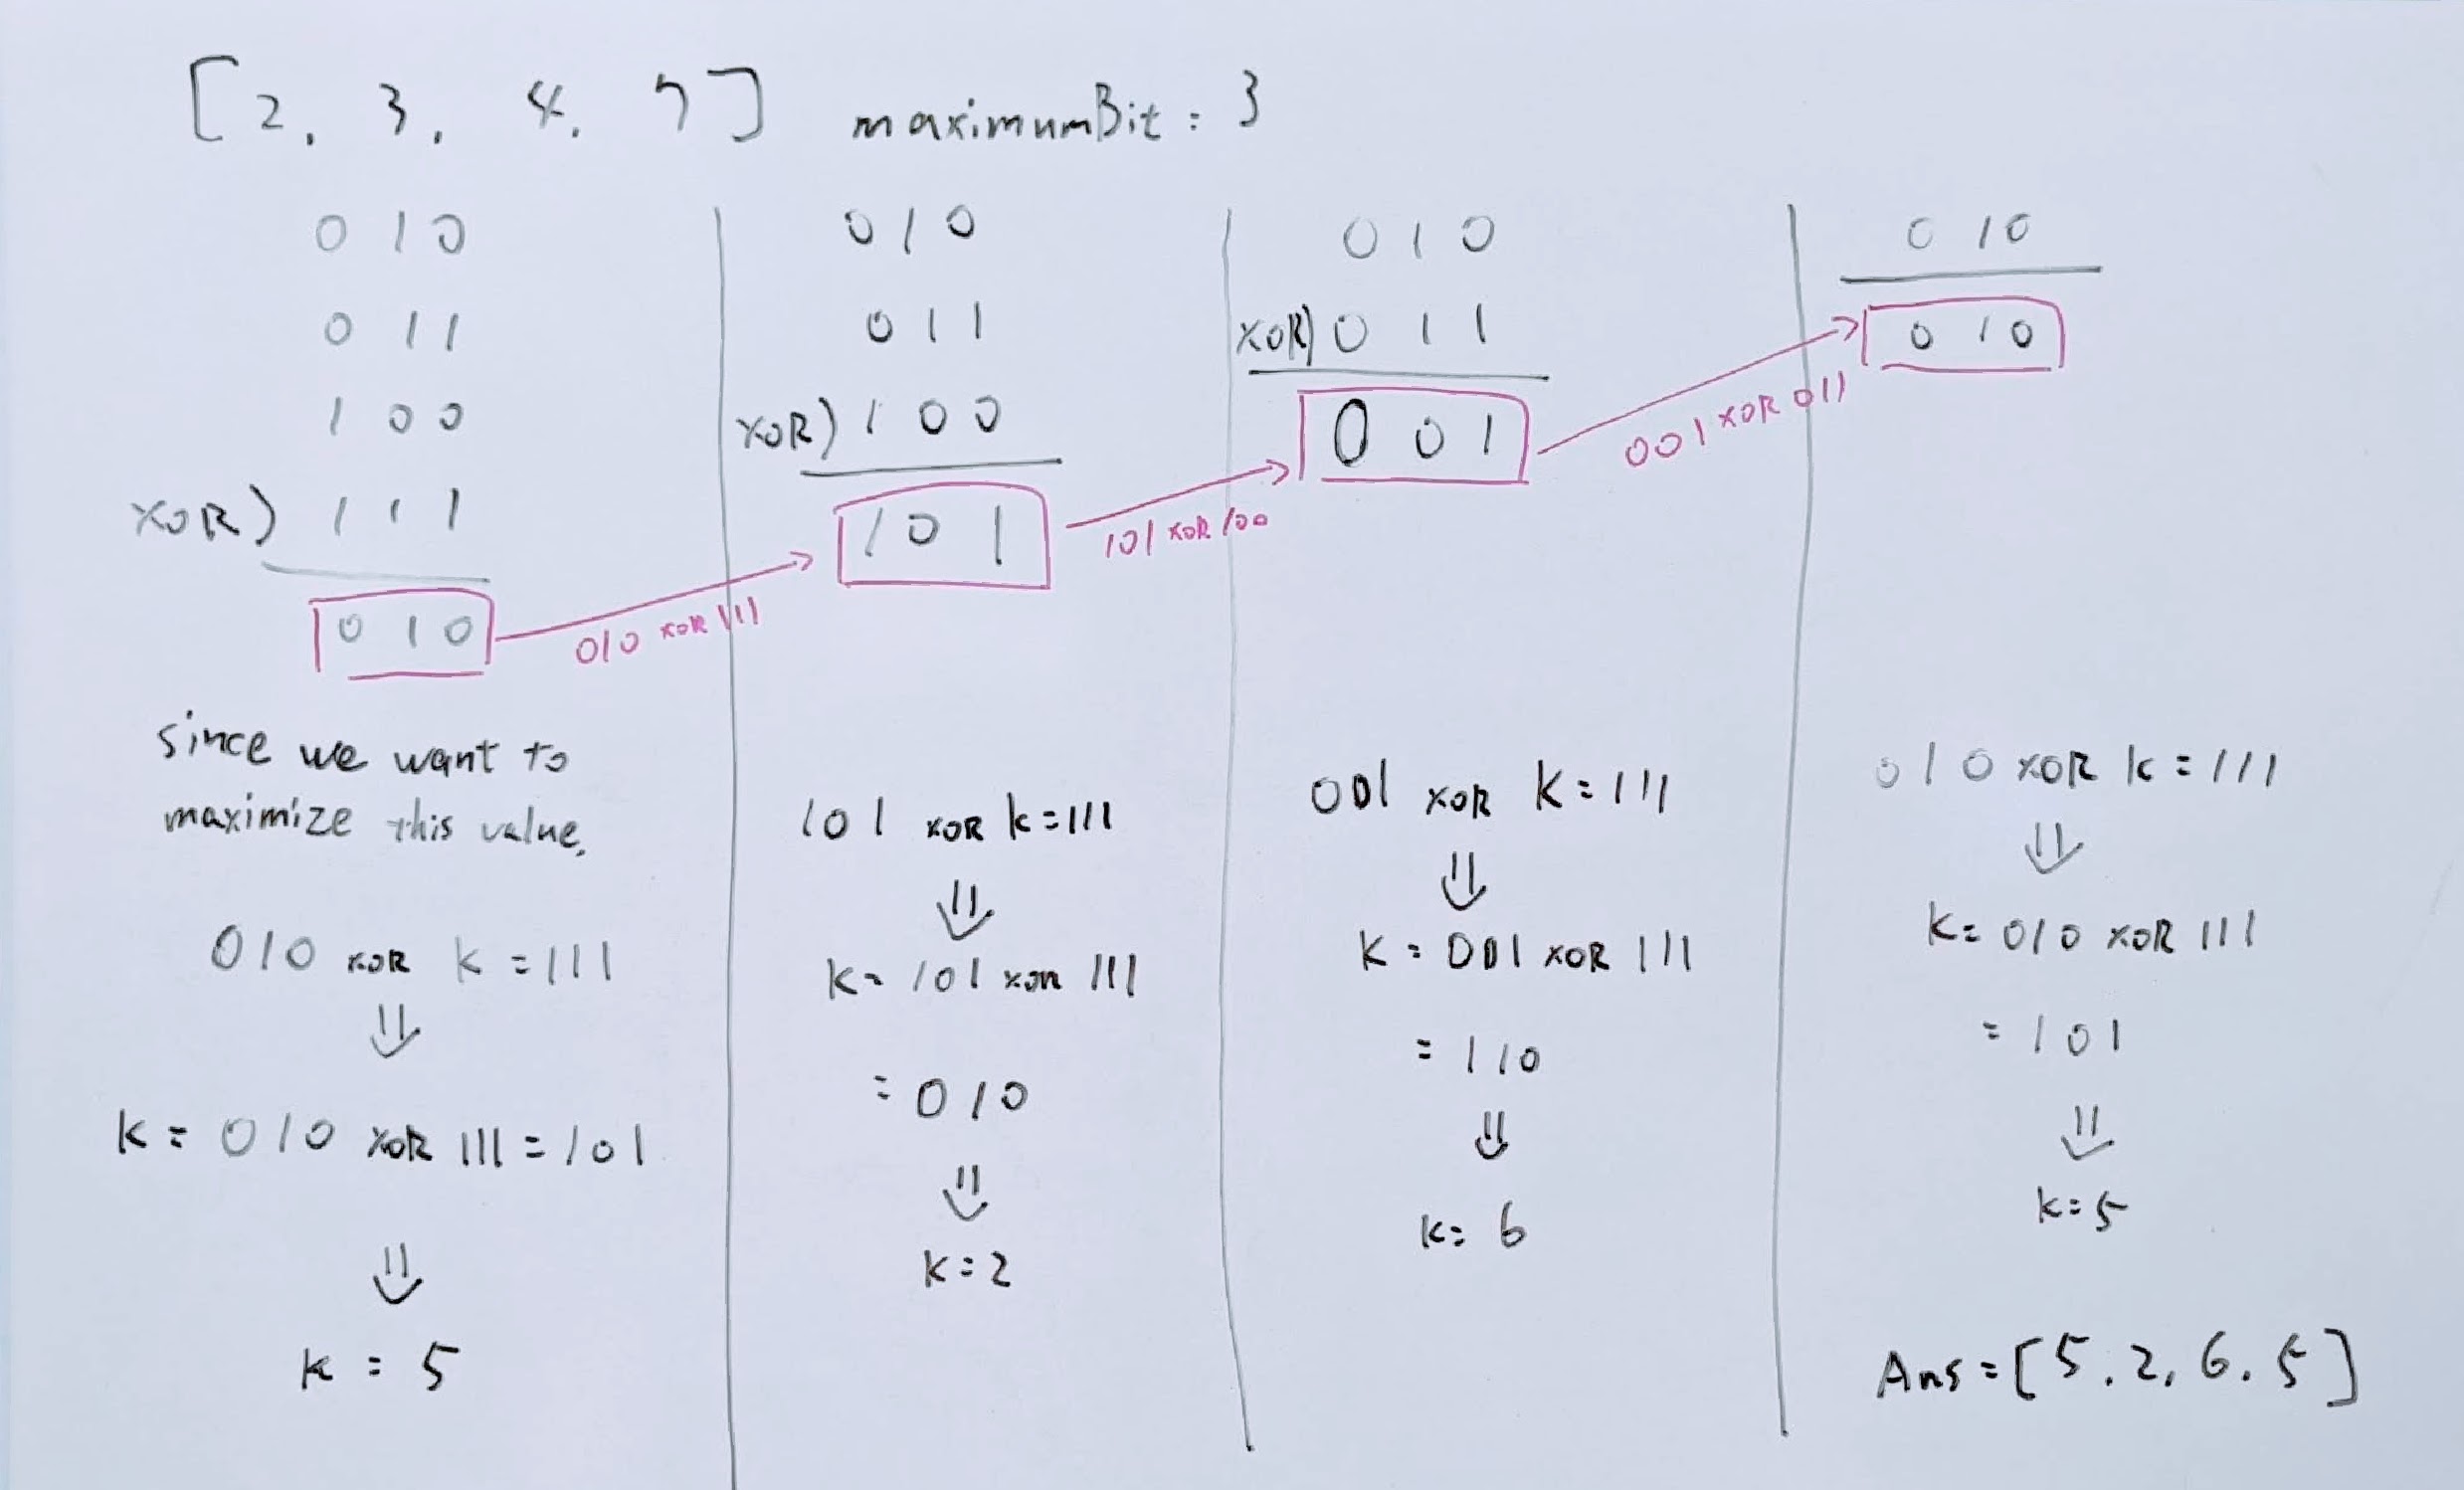 [2, 3, 4, 7] maximumBit : 3
0 1 0
0 1 1
1 0 0
XOR) 1 1 1
0 1 0
010 XOR 111
since we want to
maximize this value.
010 XOR k = 111
⇓
k = 010 XOR 111 = 101
⇓
k = 5
0 1 0
0 1 1
XOR) 1 0 0
1 0 1
101 XOR 100
101 XOR k = 111
⇓
k = 101 XOR 111
= 010
⇓
k = 2
0 1 0
XOR) 0 1 1
0 0 1
001 XOR 011
001 XOR k = 111
⇓
k = 001 XOR 111
= 110
⇓
k = 6
0 1 0
0 1 0
010 XOR k = 111
⇓
k = 010 XOR 111
= 101
⇓
k = 5
Ans = [5, 2, 6, 5]